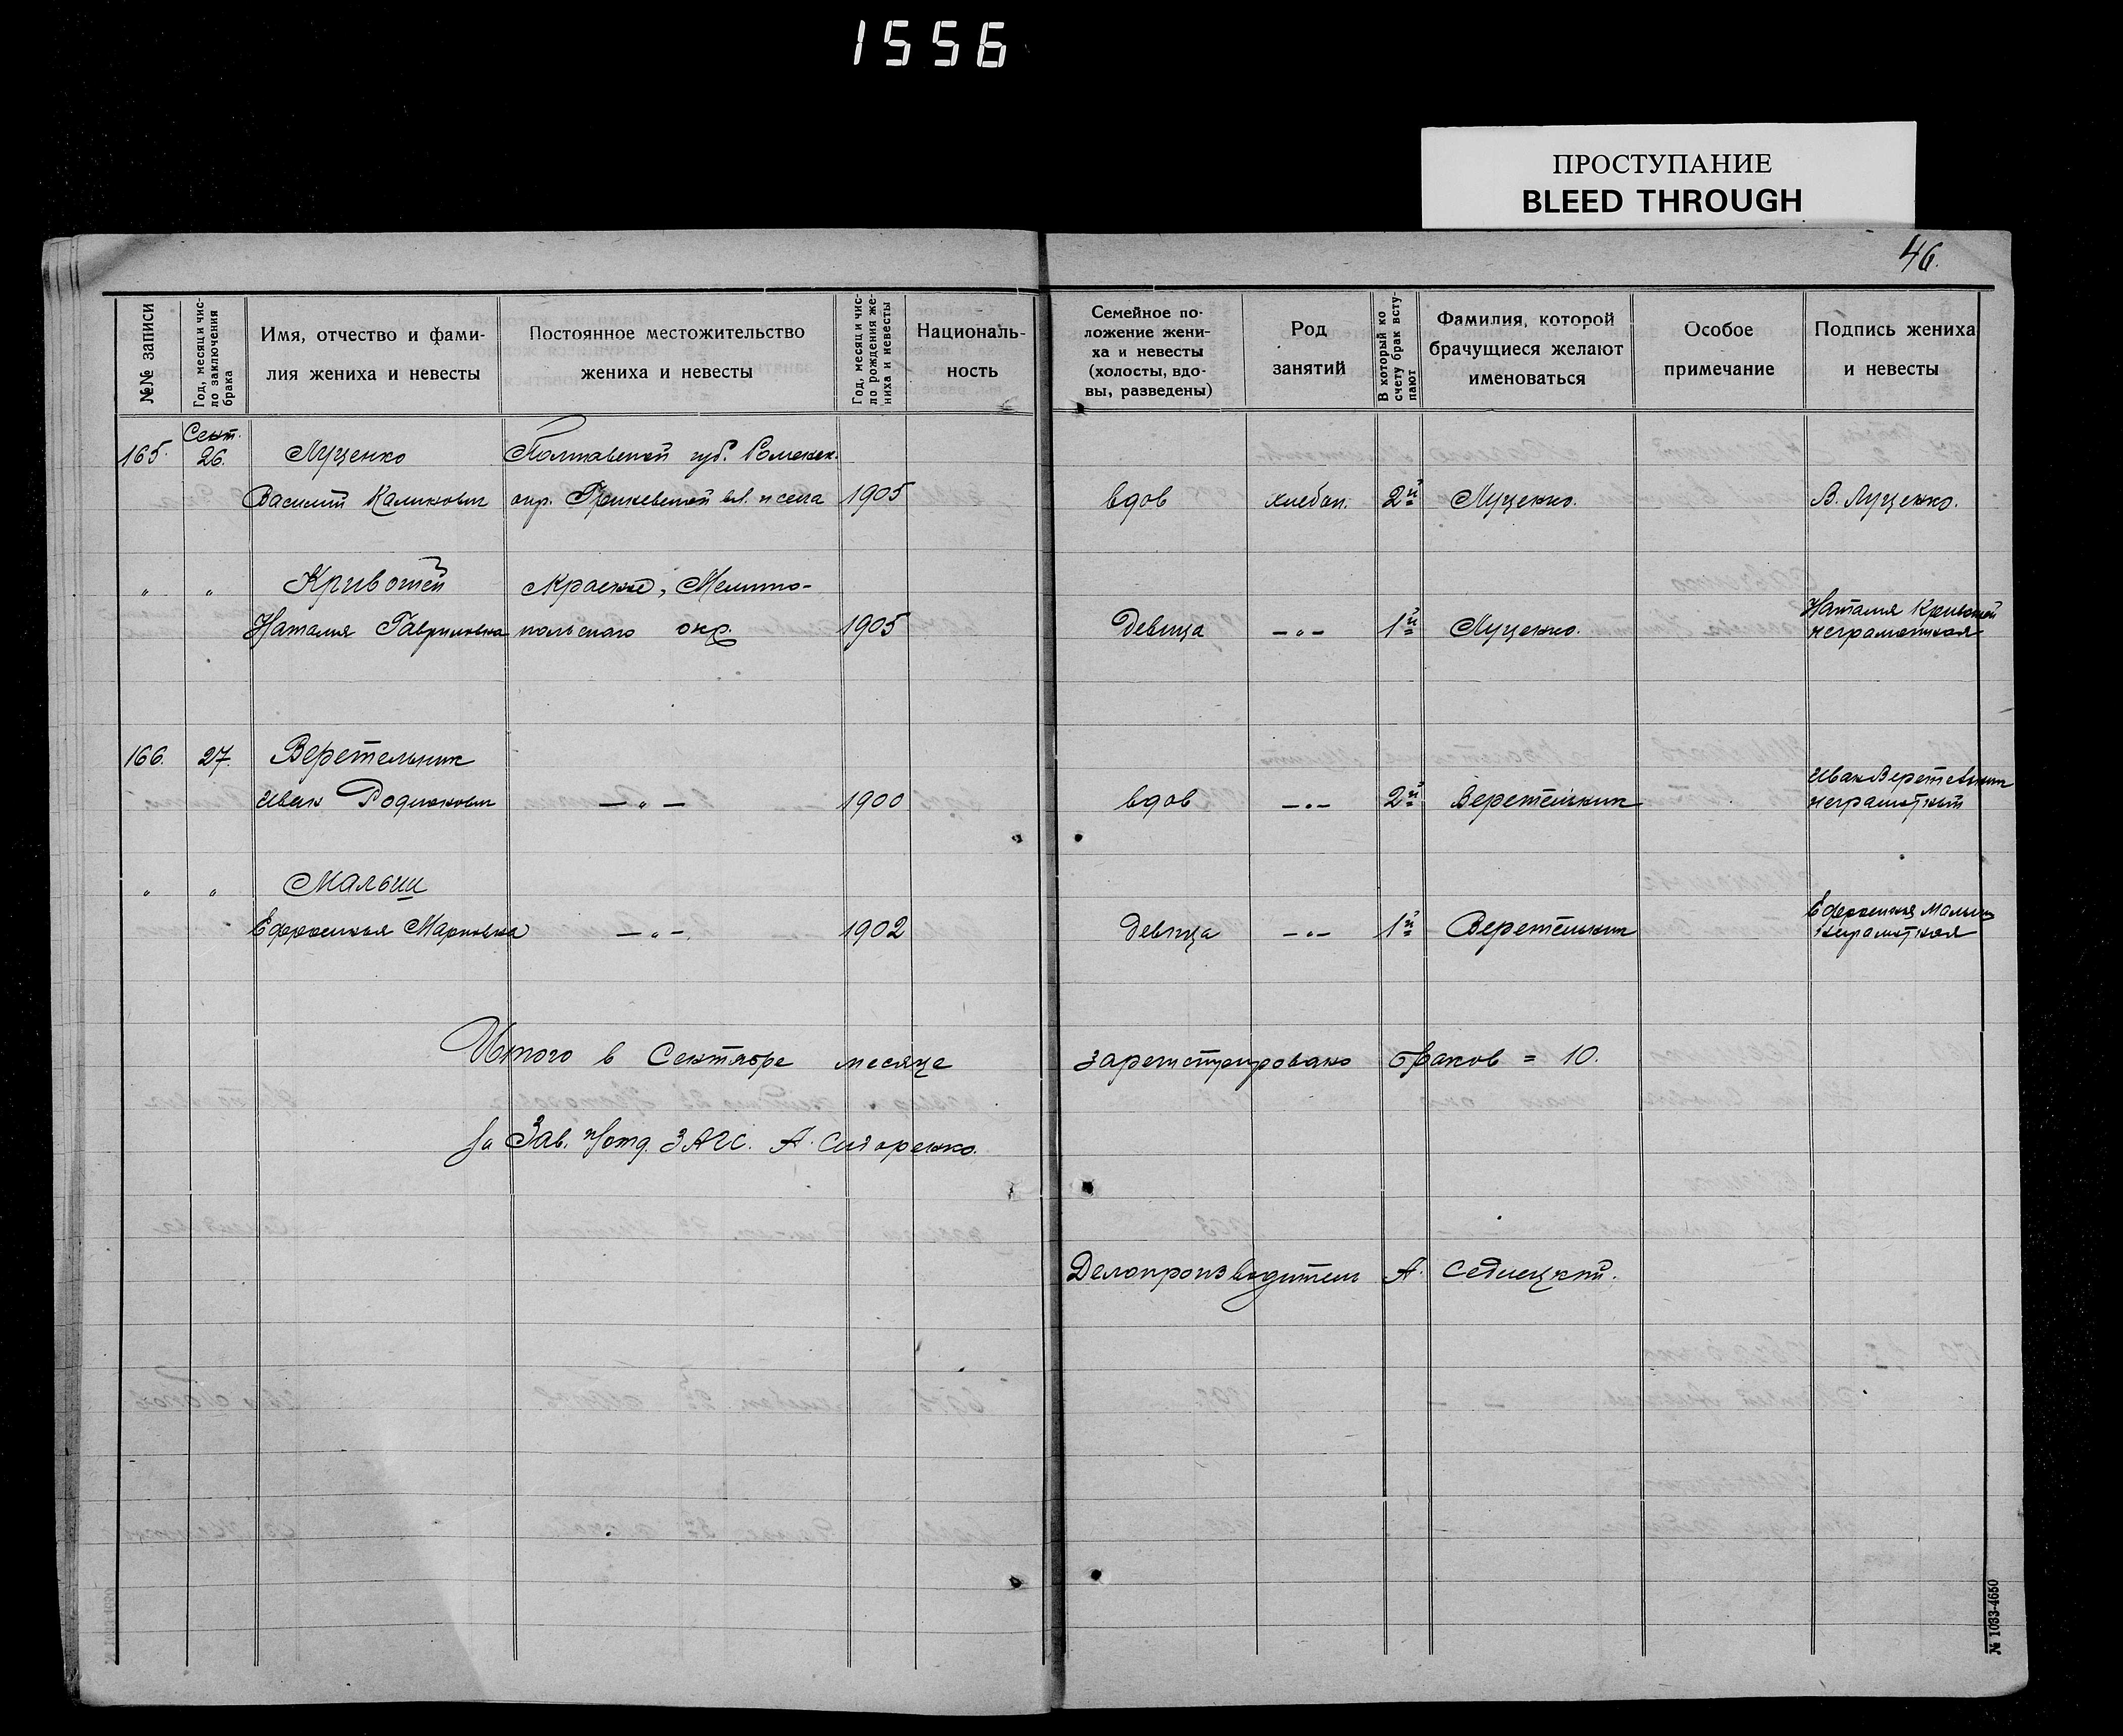 1556
ПРОСТУПАНИЕ
BLEED THROUGH
46.
№№ записи
Год, месяц и чис-
ло заключения
брака
Имя, отчество и фами-
лия жениха и невесты
Постоянное местожительство
жениха и невесты
Год, месяц и чис-
ло рождения же-
ниха и невесты
Националь-
ность
Семейное по-
ложение жени-
ха и невесты
(холосты, вдо-
вы, разведены)
Род
занятий
В который ко
счету брак всту-
пают
Фамилия, которой
брачущиеся желают
именоваться
Особое
примечание
Подпись жениха
и невесты
Сент.
165. 26. Луценко Полтавской губ. Роменск.
Василий Каликович окр. села 1905 вдов хлебоп. 2й Луценко. В. Луценко.
" " Кривошей Мелито-
Наталия Гавриловна польского окр. 1905 Девица —"— 1й Луценко. Наталия Кривошей
неграмотная
166. 27. Веретельник
Иван Родионович —"— 1900 вдов —"— 2й Веретельник Иван Веретельник
неграмотный
" " Малыш
Ефросиния Марковна —"— 1902 Девица —"— 1й Веретельник Ефросиния Малыш
неграмотная
Итого в Сентябре месяце зарегистрировано браков = 10.
За Зав. п/отд. ЗАГС. А. Сидоренко.
Делопроизводитель А. Седлецкий.
№ 1033-4650